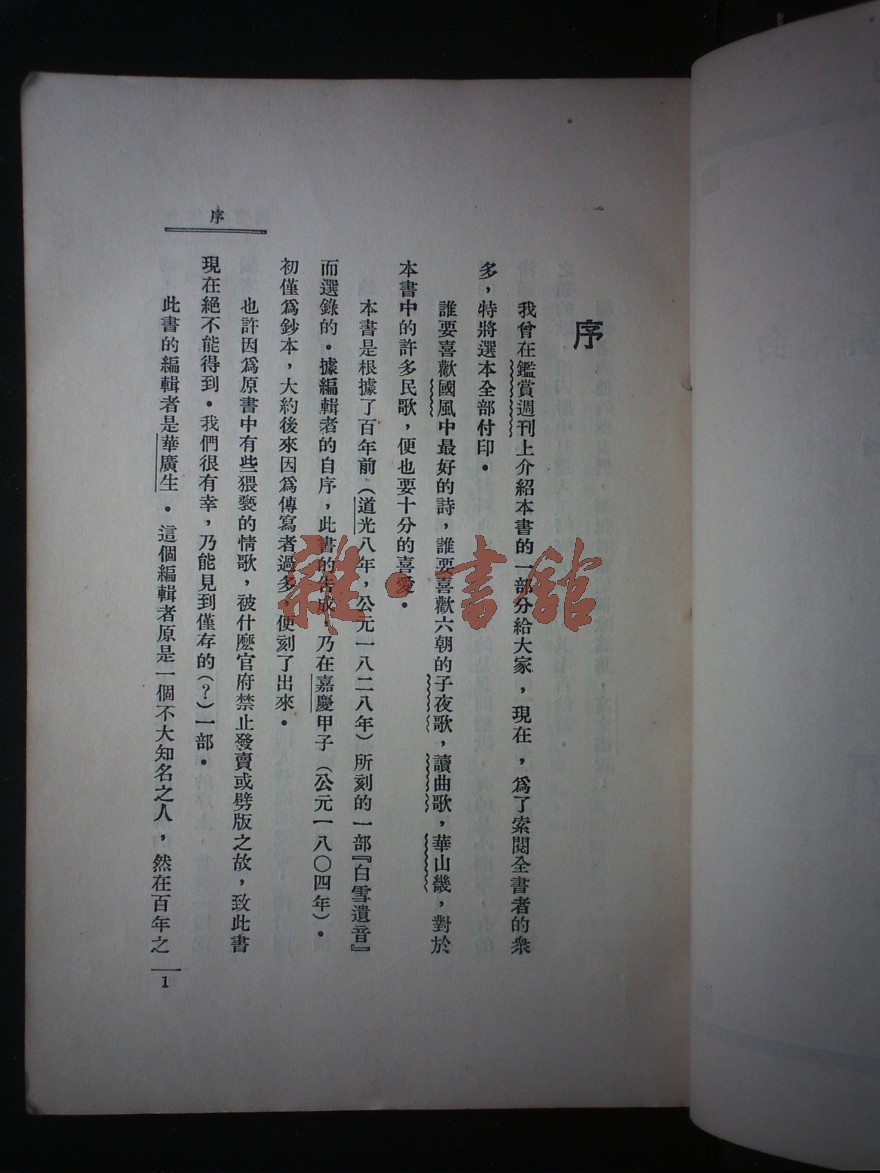 序
序
我曾在鑑賞週刊上介紹本書的一部分給大家，現在，爲了索閱全書者的衆
多，特將選本全部付印。
誰要喜歡國風中最好的詩，誰要喜歡六朝的子夜歌，讀曲歌，華山畿，對於
本書中的許多民歌，便也要十分的喜愛。
本書是根據了百年前（道光八年，公元一八二八年）所刻的一部『白雪遺音』
而選錄的。據編輯者的自序，此書的告成，乃在嘉慶甲子（公元一八〇四年）。
初僅爲鈔本，大約後來因爲傳寫者過多，便刻了出來。
也許因爲原書中有些猥褻的情歌，被什麽官府禁止發賣或劈版之故，致此書
現在絕不能得到。我們很有幸，乃能見到僅存的（？）一部。
此書的編輯者是華廣生。這個編輯者原是一個不大知名之人，然在百年之
1
雜·書館